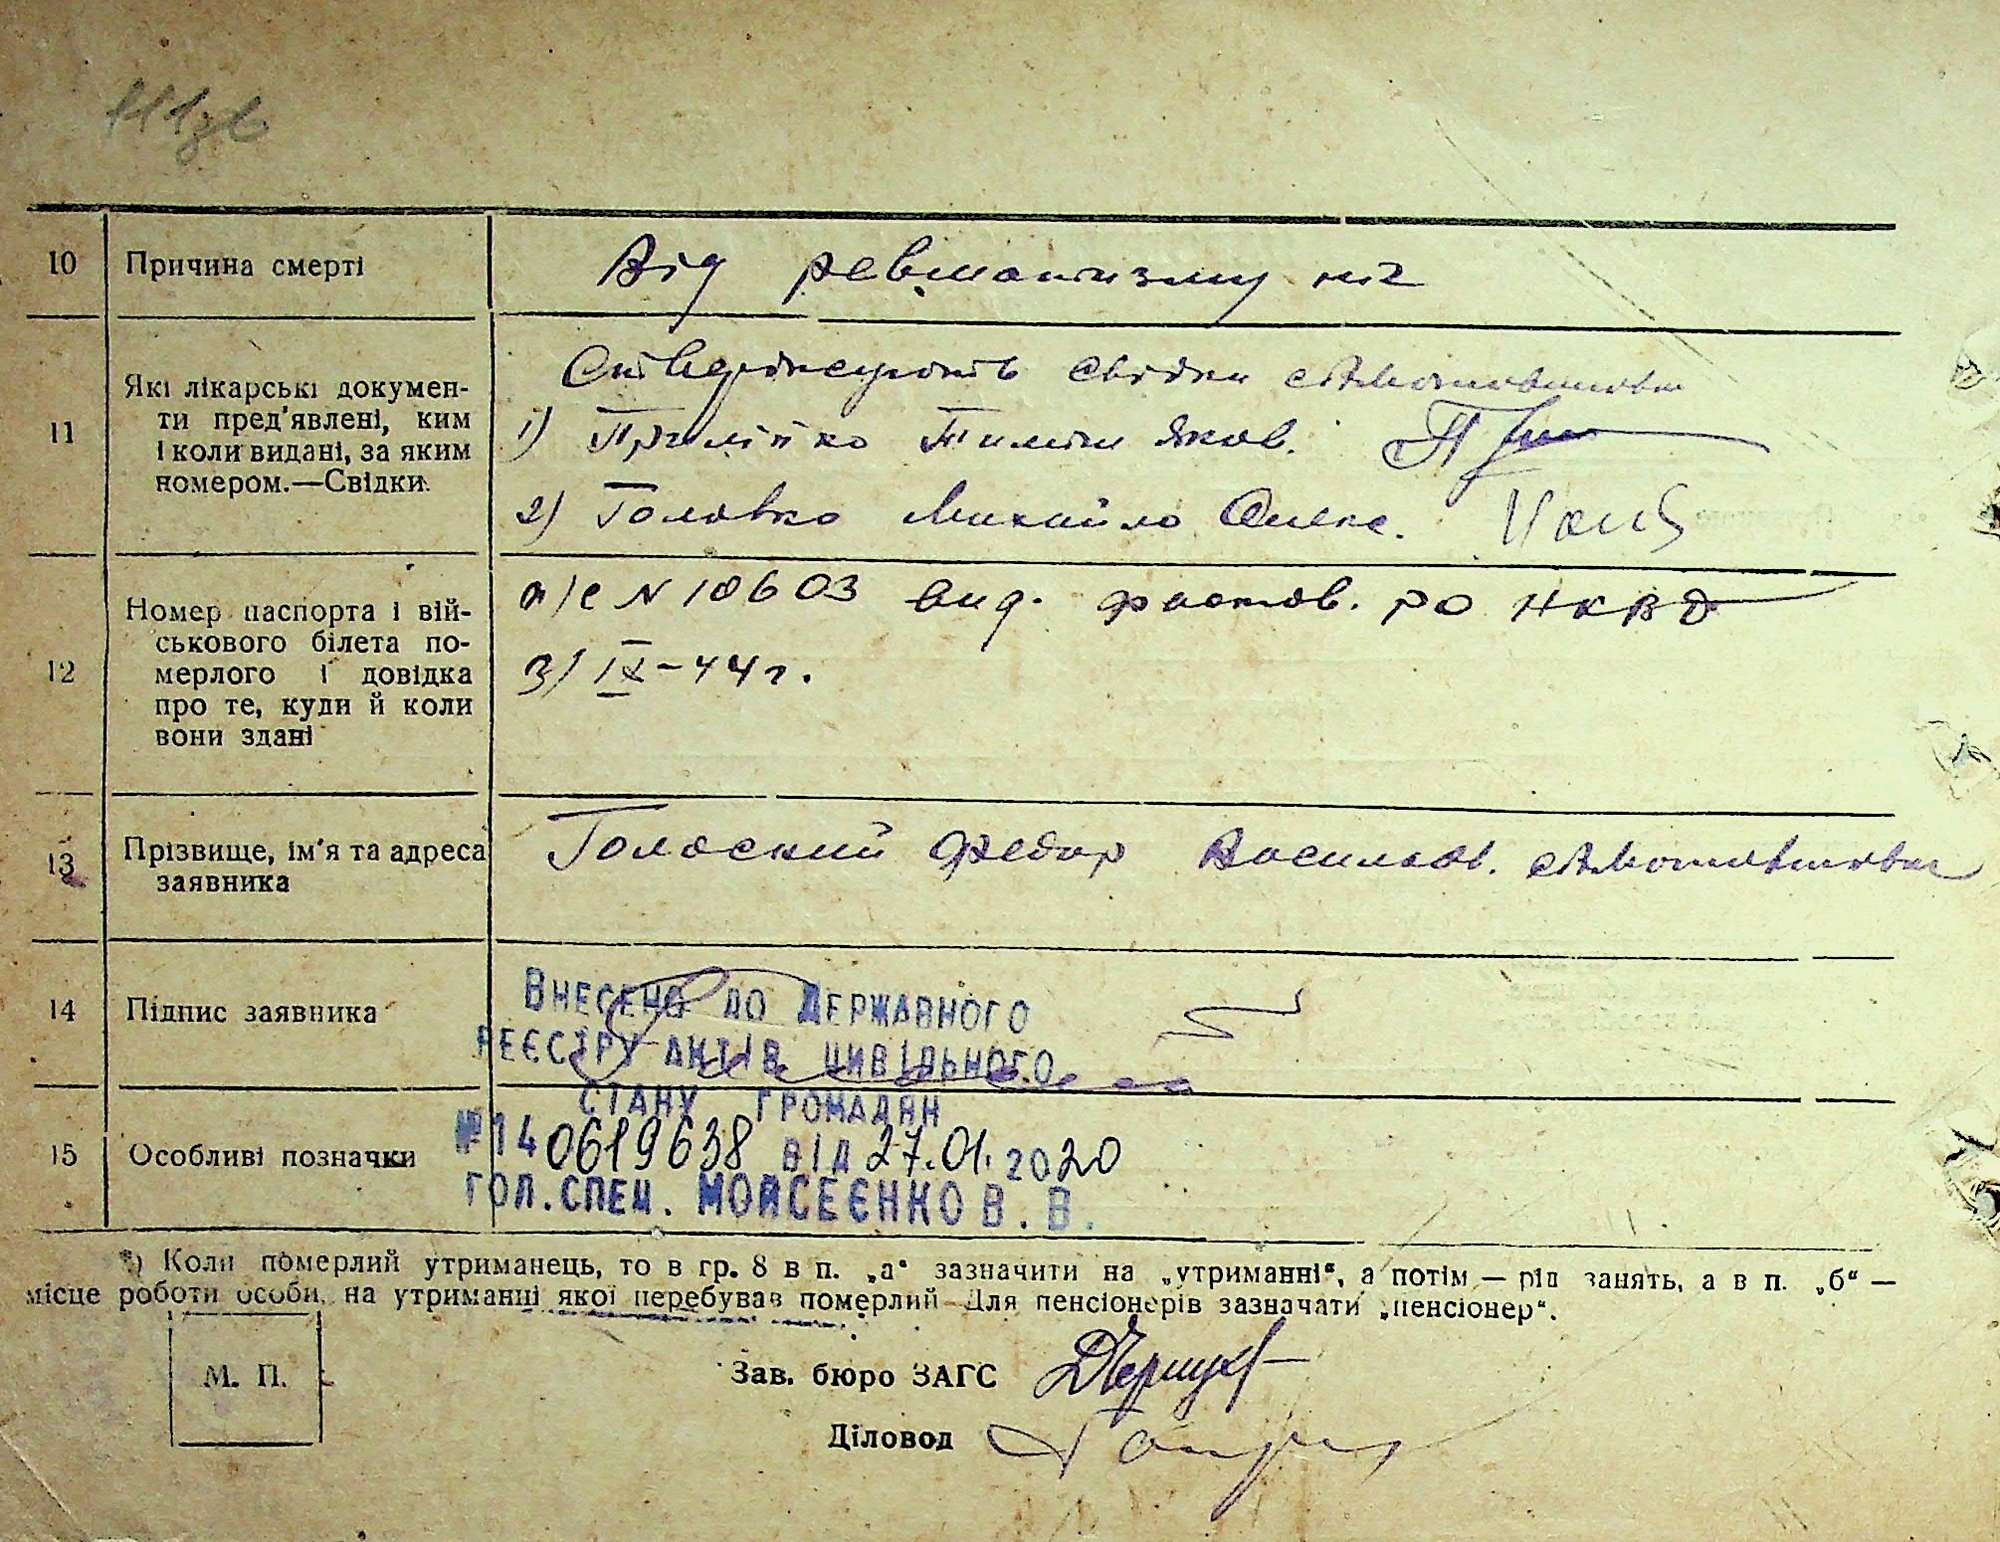 10 Причина смерті Від ревматизму ніг
11 Які лікарські докумен-
ти пред'явлені, ким
і коли видані, за яким
номером.—Свідки.
Стверджують свідки
1) Тиміш Яков.
2) Головко Михайло Олекс.
12 Номер паспорта і вій-
ськового білета по-
мерлого і довідка
про те, куди й коли
вони здані
п/с N 18603 вид. фастов. РО НКВД
3/IX-44 г.
13 Прізвище, ім'я та адреса
заявника
Голоский Федор Васильов.
14 Підпис заявника
Внесено до Державного
реєстру актів цивільного
стану громадян
№ 14 0619638 від 27.01.2020
гол. спец. Мойсеєнко В. В.
15 Особливі позначки
*) Коли померлий утриманець, то в гр. 8 в п. „а“ зазначити на „утриманні“, а потім — рід занять, а в п. „б“ —
місце роботи особи, на утриманні якої перебував померлий Для пенсіонерів зазначати „пенсіонер“.
М. П.
Зав. бюро ЗАГС
Діловод